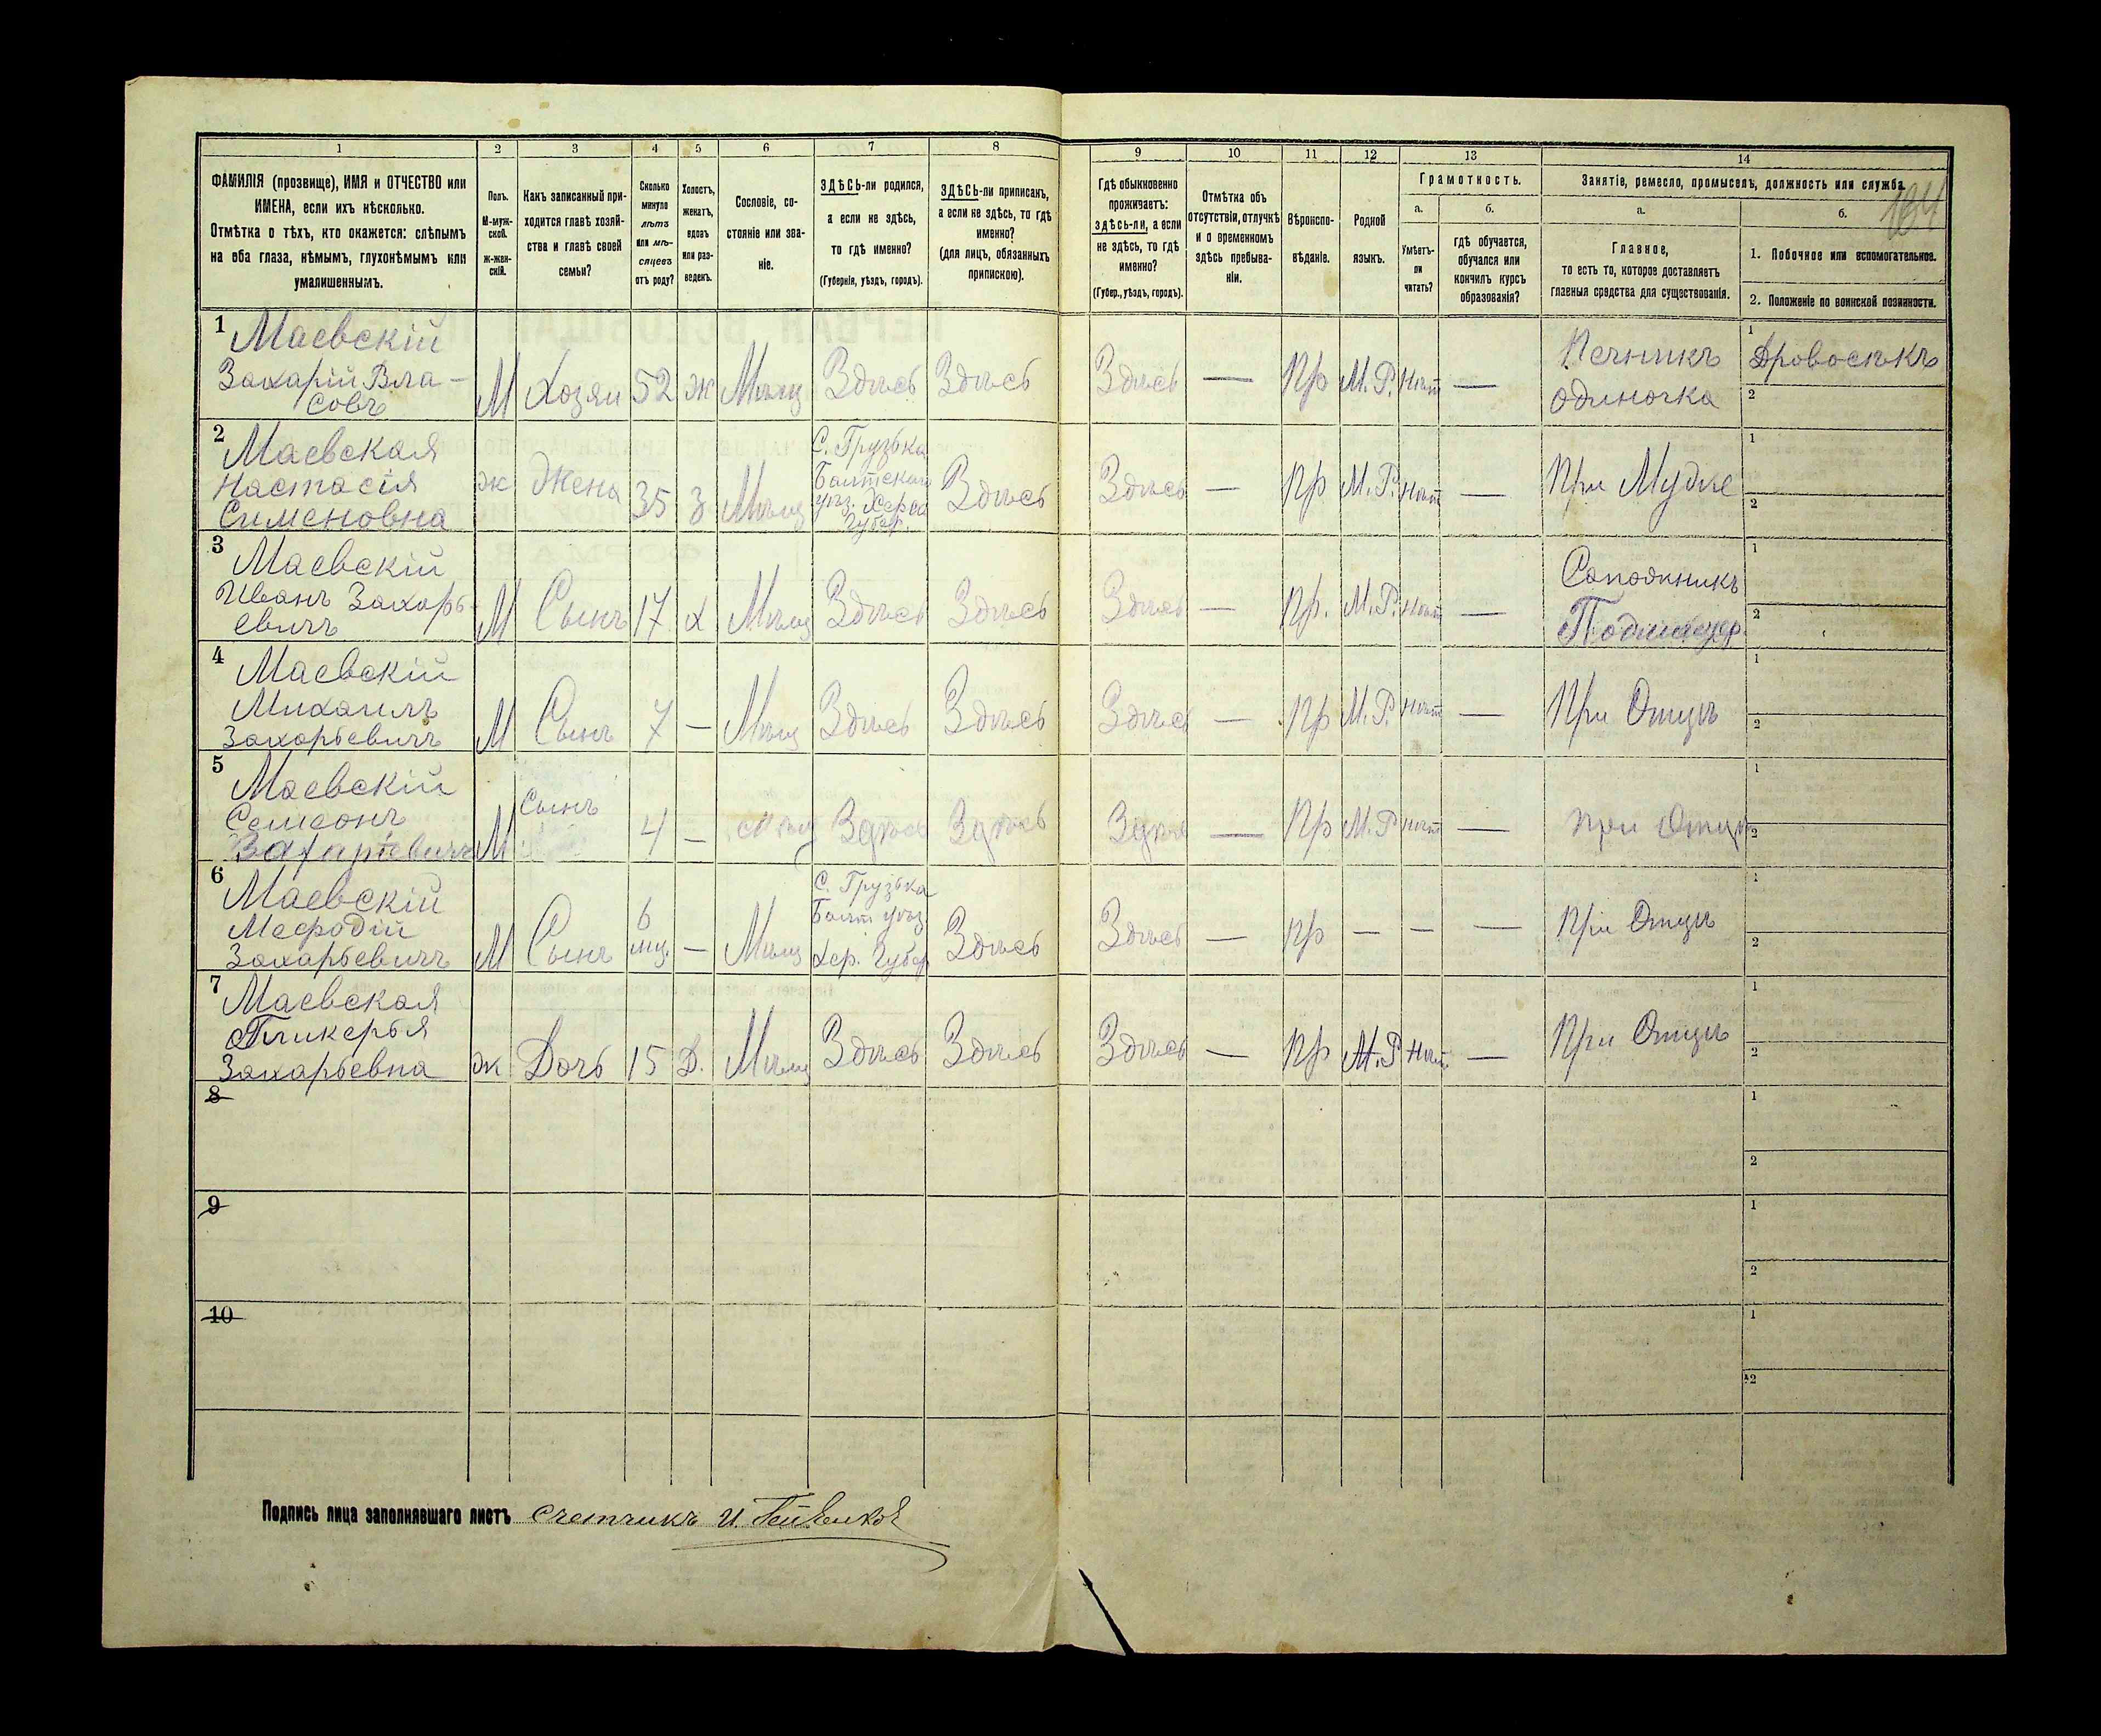 1 2 3 4 5 6 7 8 9 10 11 12 13 14
ФАМИЛІЯ (прозвище), ИМЯ и ОТЧЕСТВО или
ИМЕНА, если ихъ нѣсколько.
Отмѣтка о тѣхъ, кто окажется: слѣпымъ
на оба глаза, нѣмымъ, глухонѣмымъ или
умалишеннымъ.
Полъ.
М-муж-
ской.
ж-жен-
скій.
Какъ записанный при-
ходится главѣ хозяй-
ства и главѣ своей
семьи?
Сколько
минуло
лѣтъ
или мѣ-
сяцевъ
отъ роду?
Холостъ,
женатъ,
вдовъ
или раз-
веденъ.
Сословіе, со-
стояніе или зва-
ніе.
ЗДѢСЬ-ли родился,
а если не здѣсь,
то гдѣ именно?
(Губернія, уѣздъ, городъ).
ЗДѢСЬ-ли приписанъ,
а если не здѣсь, то гдѣ
именно?
(для лицъ, обязанныхъ
припискою).
Гдѣ обыкновенно
проживаетъ:
здѣсь-ли, а если
не здѣсь, то гдѣ
именно?
(Губер., уѣздъ, городъ).
Отмѣтка объ
отсутствіи, отлучкѣ
и о временномъ
здѣсь пребыва-
ніи.
Вѣроиспо-
вѣданіе.
Родной
языкъ.
Грамотность.
а.
Умѣетъ-
ли
читать?
б.
гдѣ обучается,
обучался или
кончилъ курсъ
образованія?
Занятіе, ремесло, промыселъ, должность или служба.
а.
Главное,
то есть то, которое доставляетъ
главныя средства для существованія.
б.
1. Побочное или вспомогательное.
2. Положеніе по воинской повинности.
1 Маевскій
Захарій Вла-
совъ
М Хозяи 52 ж Мѣщ Здѣсь Здѣсь Здѣсь — Пр М.Р. Нѣт —
Печникъ
одиночка
1 Дровосѣкъ
2
2 Маевская
Настасія
Сименовна
ж Жена 35 З Мѣщ
С. Грузька
Балтскаго
уѣз. Херсо
Губер.
Здѣсь Здѣсь — Пр М.Р. Нѣт — При Мужѣ
1
2
3 Маевскій
Иванъ Захарь-
евичъ
М Сынъ 17 х Мѣщ Здѣсь Здѣсь Здѣсь — Пр. М.Р. Нѣт —
Сапожникъ
1
2
4 Маевскій
Михаилъ
Захарьевичъ
М Сынъ 7 — Мѣщ Здѣсь Здѣсь Здѣсь — Пр М.Р. Нѣт — При Отцѣ
1
2
5 Маевскій
Семеонъ
Захарьевичъ
М Сынъ 4 — Мѣщ Здѣсь Здѣсь Здѣсь — Пр М.Р Нѣт — при Отцѣ
1
2
6 Маевскій
Мефодій
Захарьевичъ
М Сынъ 6
мц. — Мѣщ
С. Грузька
Балт уѣз.
Хер. Губер
Здѣсь Здѣсь — Пр — — — При Отцѣ
1
2
7 Маевская
Гликерья
Захарьевна
ж Дочь 15 Д. Мѣщ Здѣсь Здѣсь Здѣсь — Пр М.Р Нѣт. — При Отцѣ
1
2
8
1
2
9
1
2
10
1
2
Подпись лица заполнявшаго листъ счетчикъ И.